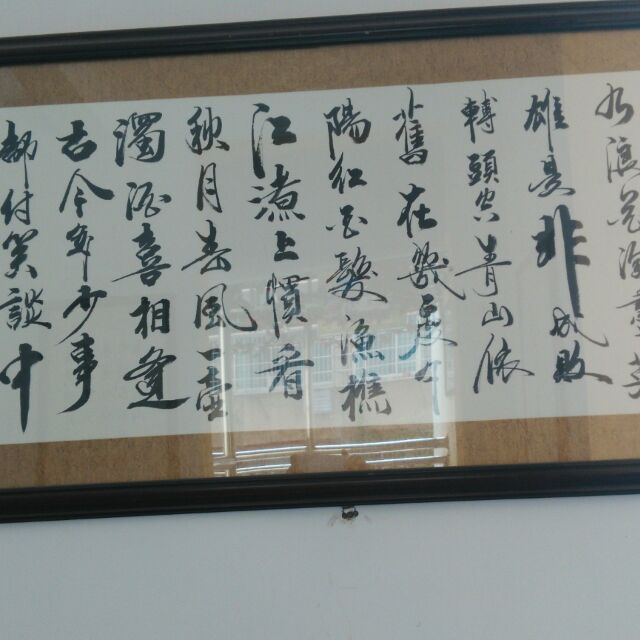 水浪花淘盡英
雄是非成敗
轉頭空青山依
舊在幾度夕
陽紅白髮漁樵
江渚上慣看
秋月春風一壺
濁酒喜相逢
古今多少事
都付笑談中